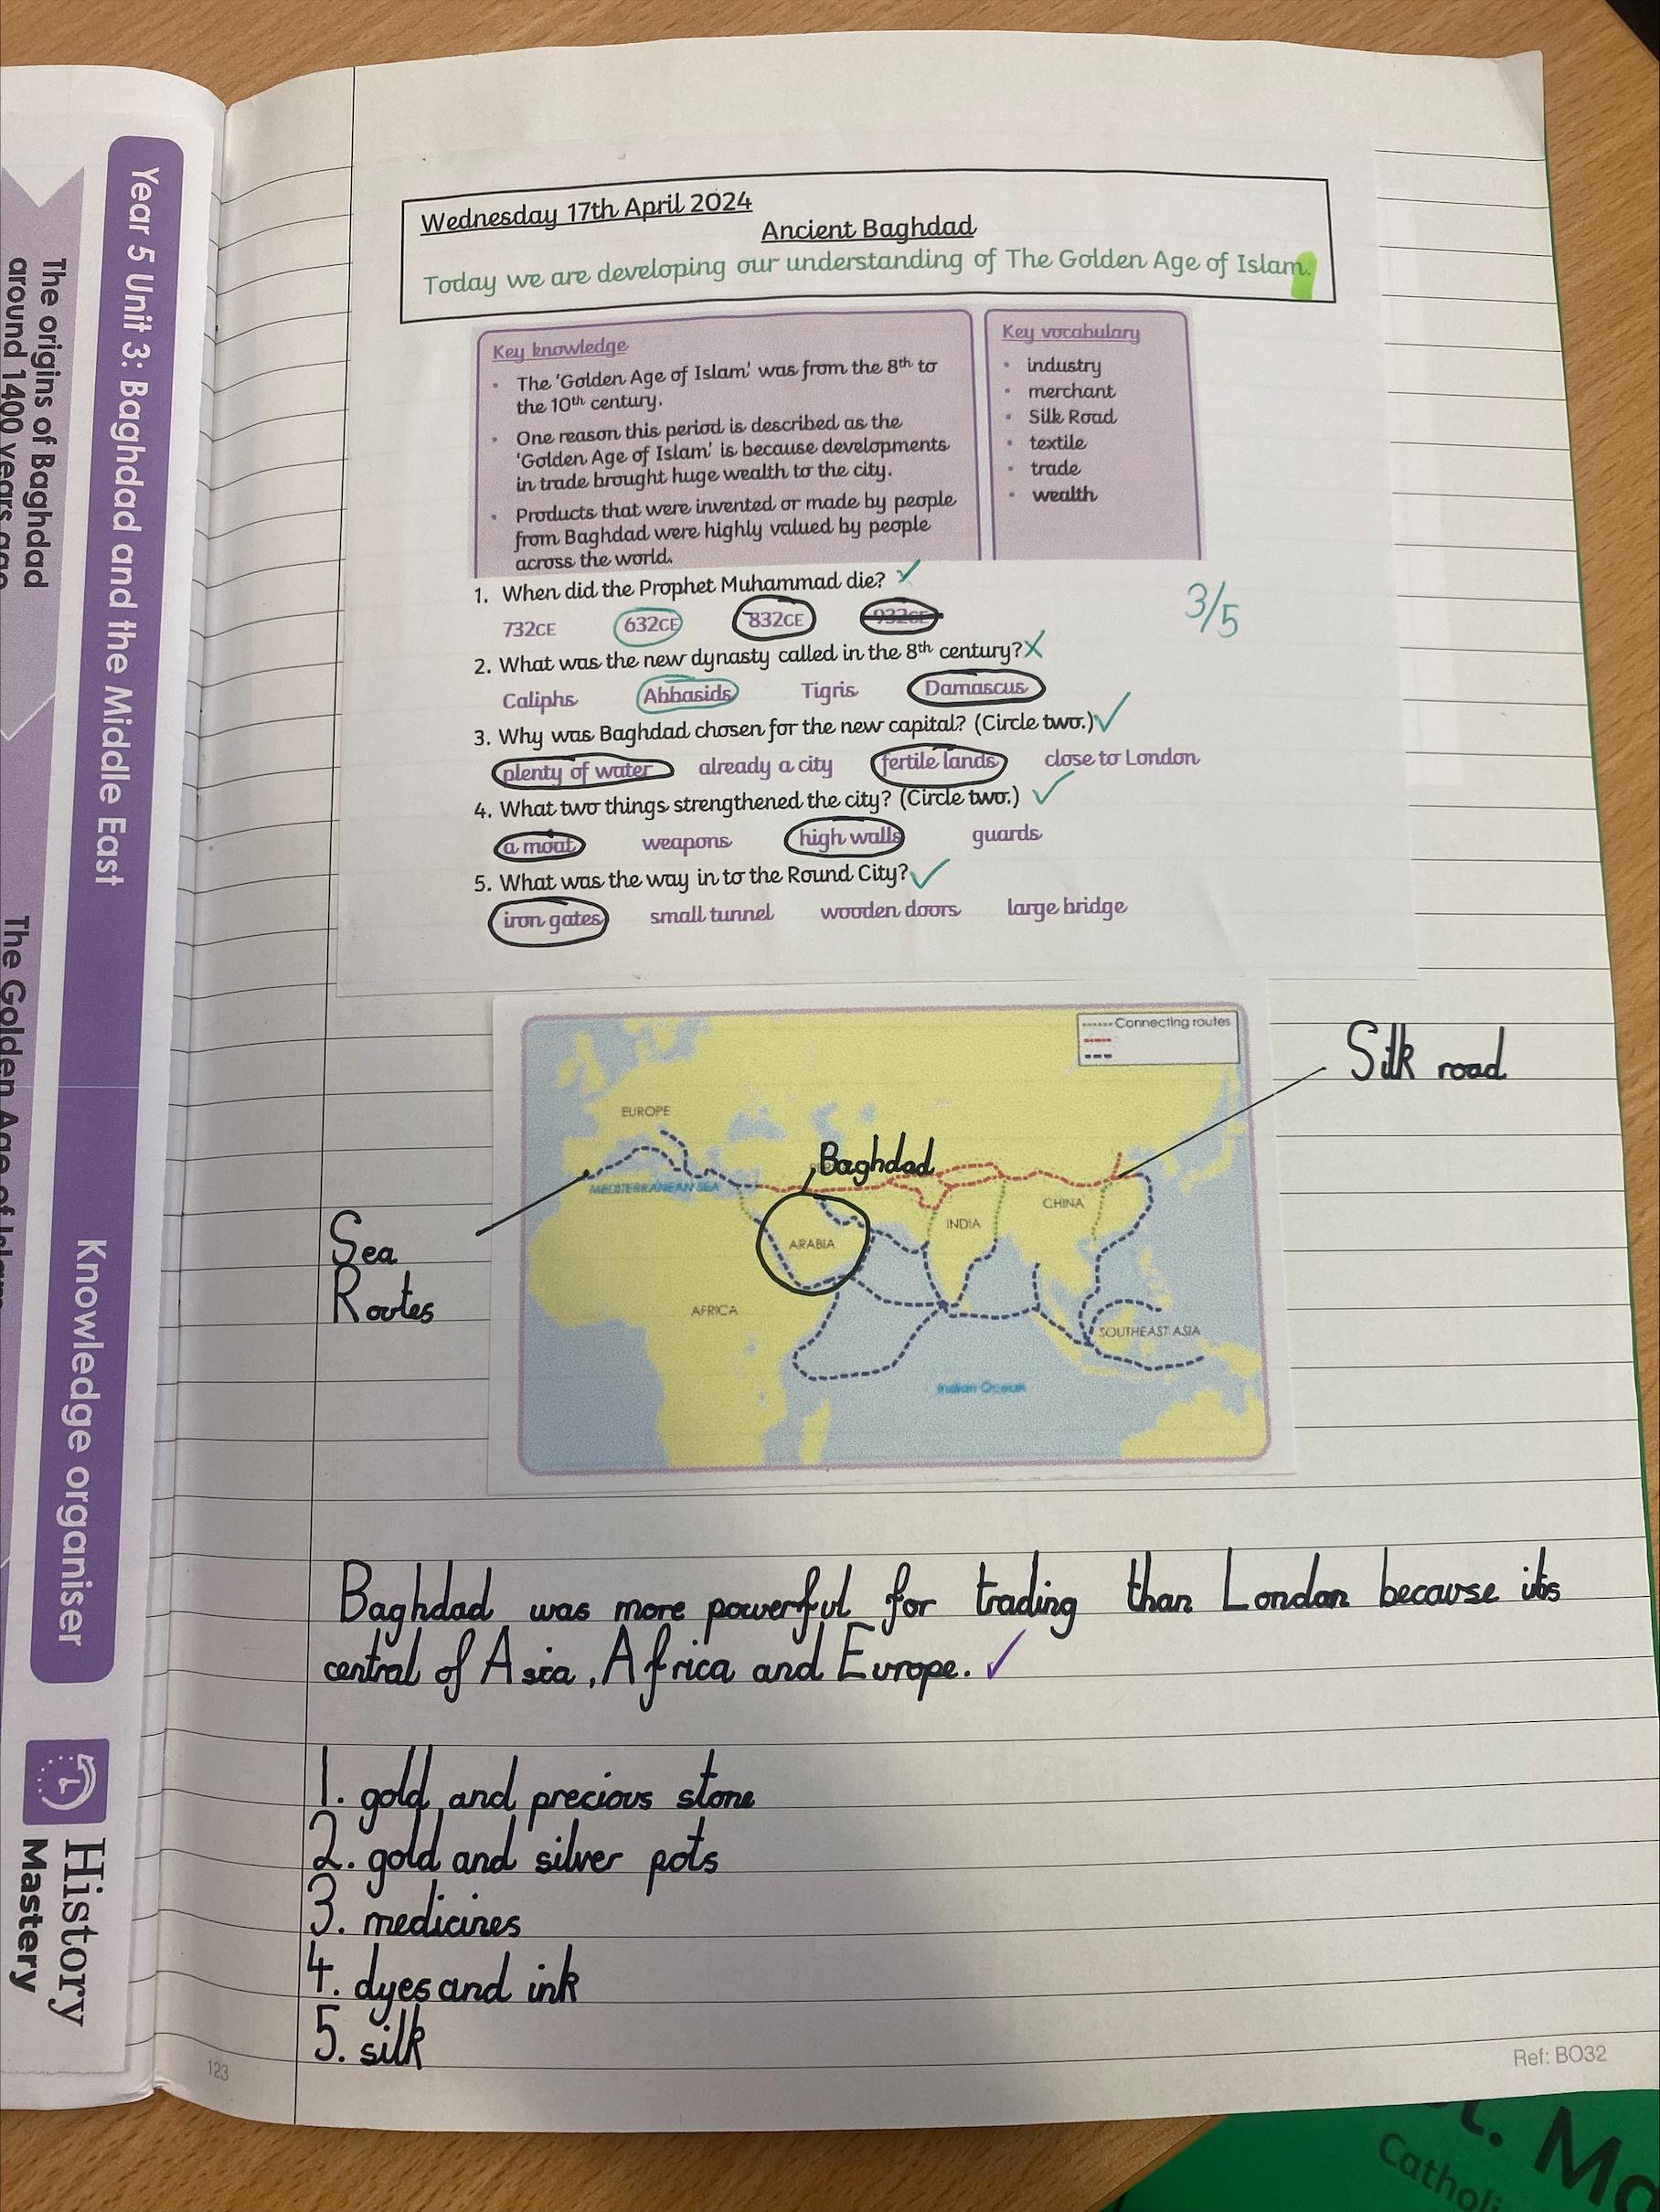 Year 5 Unit 3: Baghdad and the Middle East
Knowledge organiser
The origins of Baghdad
around 1400 years ago
The Golden Age of Islam
History
Mastery
123
Wednesday 17th April 2024
Ancient Baghdad
Today we are developing our understanding of The Golden Age of Islam.
Key knowledge
• The 'Golden Age of Islam' was from the 8th to
the 10th century.
• One reason this period is described as the
'Golden Age of Islam' is because developments
in trade brought huge wealth to the city.
• Products that were invented or made by people
from Baghdad were highly valued by people
across the world.
Key vocabulary
• industry
• merchant
• Silk Road
• textile
• trade
• wealth
1. When did the Prophet Muhammad die?
732CE 632CE 832CE 932CE
3/5
2. What was the new dynasty called in the 8th century?
Caliphs Abbasids Tigris Damascus
3. Why was Baghdad chosen for the new capital? (Circle two.)
plenty of water already a city fertile lands close to London
4. What two things strengthened the city? (Circle two.)
a moat weapons high walls guards
5. What was the way in to the Round City?
iron gates small tunnel wooden doors large bridge
Connecting routes
Silk road
EUROPE
Baghdad
MEDITERRANEAN SEA
CHINA
INDIA
ARABIA
Sea
Routes
AFRICA
SOUTHEAST ASIA
Indian Ocean
Baghdad was more powerful for trading than London because its
central of Asia, Africa and Europe.
1. gold and precious stone
2. gold and silver pots
3. medicines
4. dyes and ink
5. silk
Ref: BO32